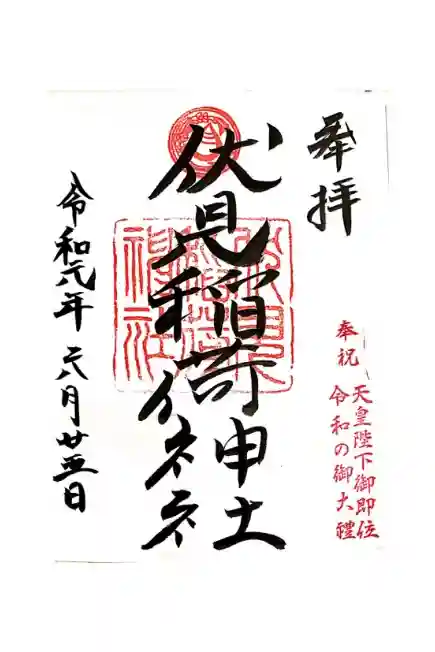 奉拝
奉祝 天皇陛下御即位
令和の御大禮
伏見稲荷神社
令和元年六月廿五日